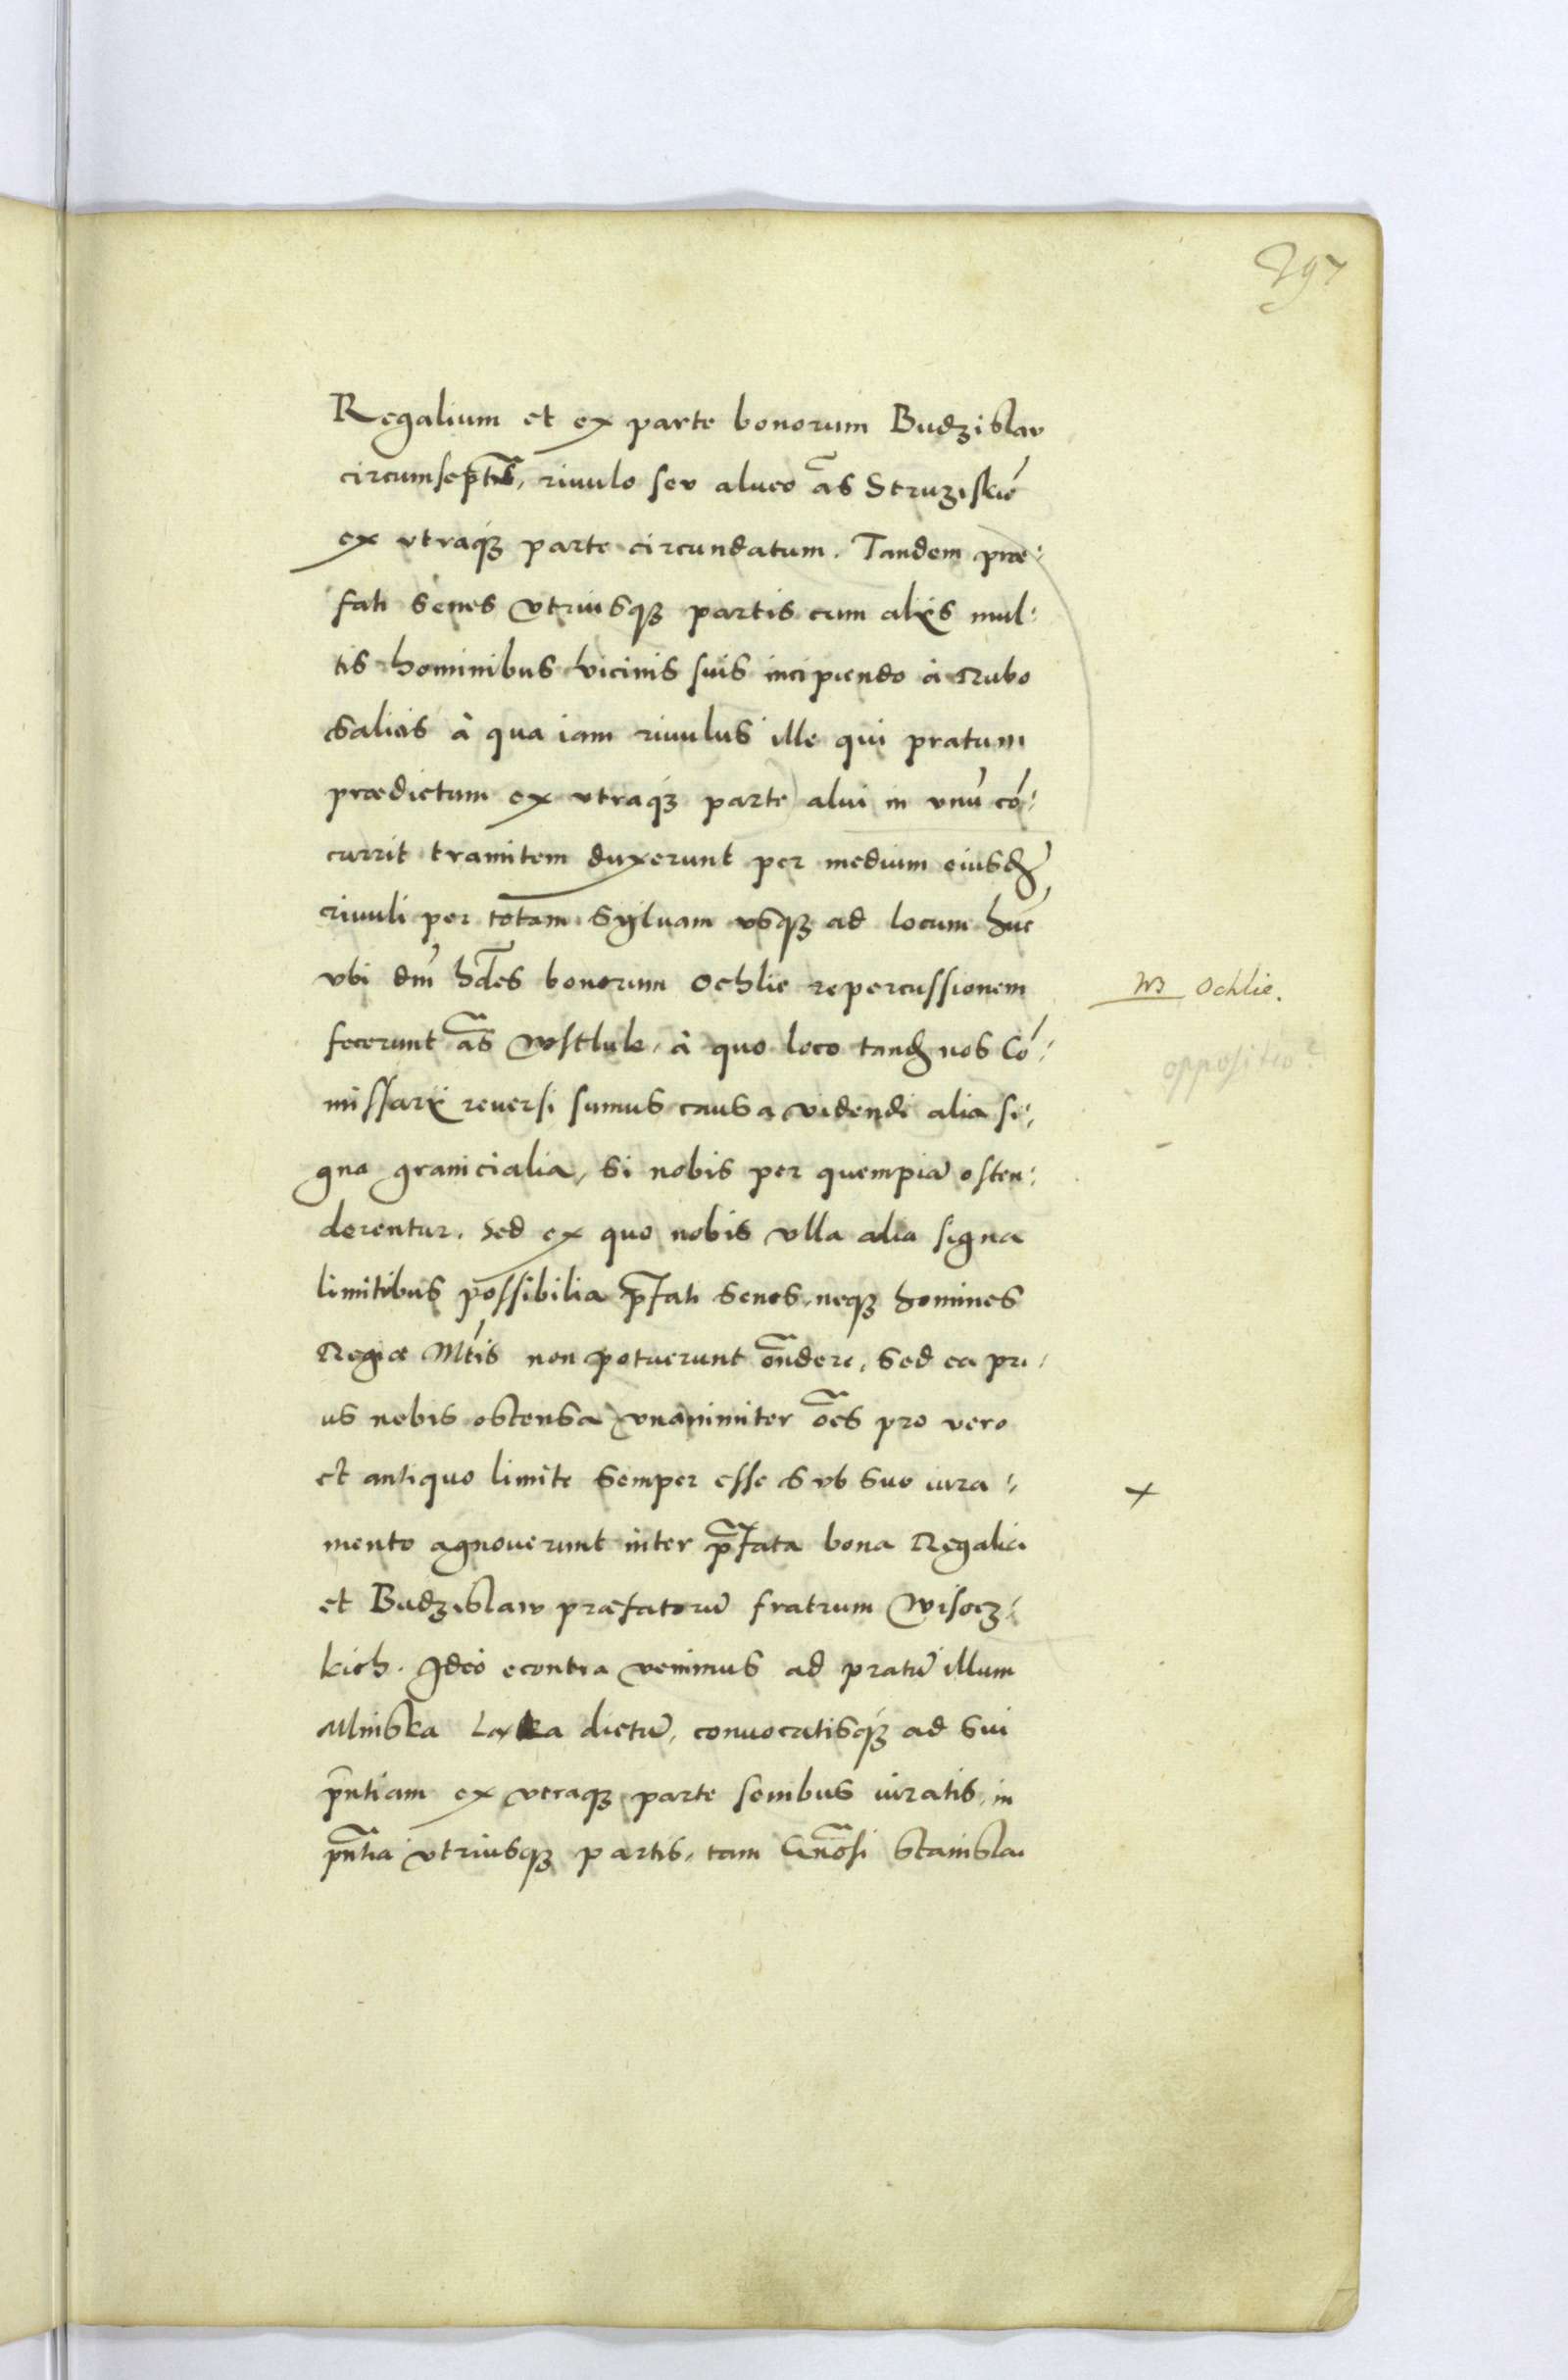 297
Regalium et ex parte bonorum Budzislaw
circumsept͠is, riuulo seu alueo a͠s Struziskié
ex vtraq́ʒ parte circundatum. Tandem præ:
fati senes vtriusqʒ partis cum alijs mul:
tis hominibus vicinis suis incipiendo à Rubo
salicis à qua iam riuulus ille qui pratum
prædictum ex vtraq́ʒ parte alui in vnū cō:
currit tramitem duxerunt per medium eiusd͠
riuuli per totam syluam vsqʒ ad locum hūc
vbi dm̄ hd͠es bonorum Ochlie repercussionem
fecerunt a͠s Wstluk, à quo loco tand͠ nos Cō:
missarij reuersi sumus causa videndi alia si:
gna granicialia, si nobis per quempiā osten:
derentur. Sed ex quo nobis vlla alia signa
limitibus possibilia p͠fati senes, neqʒ homines
Regiæ Mt́is non potuerunt on͠dere, sed ea pri:
us nobis ostensa vnanimiter oe͠s pro vero
et antiquo limite semper esse sub suo iura:
mento agnouerunt inter p͠fata bona Regalia
et Budzislaw præfatorū fratrum Wisocz:
kich. Ideo econtra venimus ad pratū illum
Mlinska Laka dictū, conuocatisq́ʒ ad sui
pn͠tiam ex vtraqʒ parte senibus iuratis, in
pn͠tia vtriusqʒ partis, tam Gn͠osi Stanislai
NB Ochlie.
oppositio
x